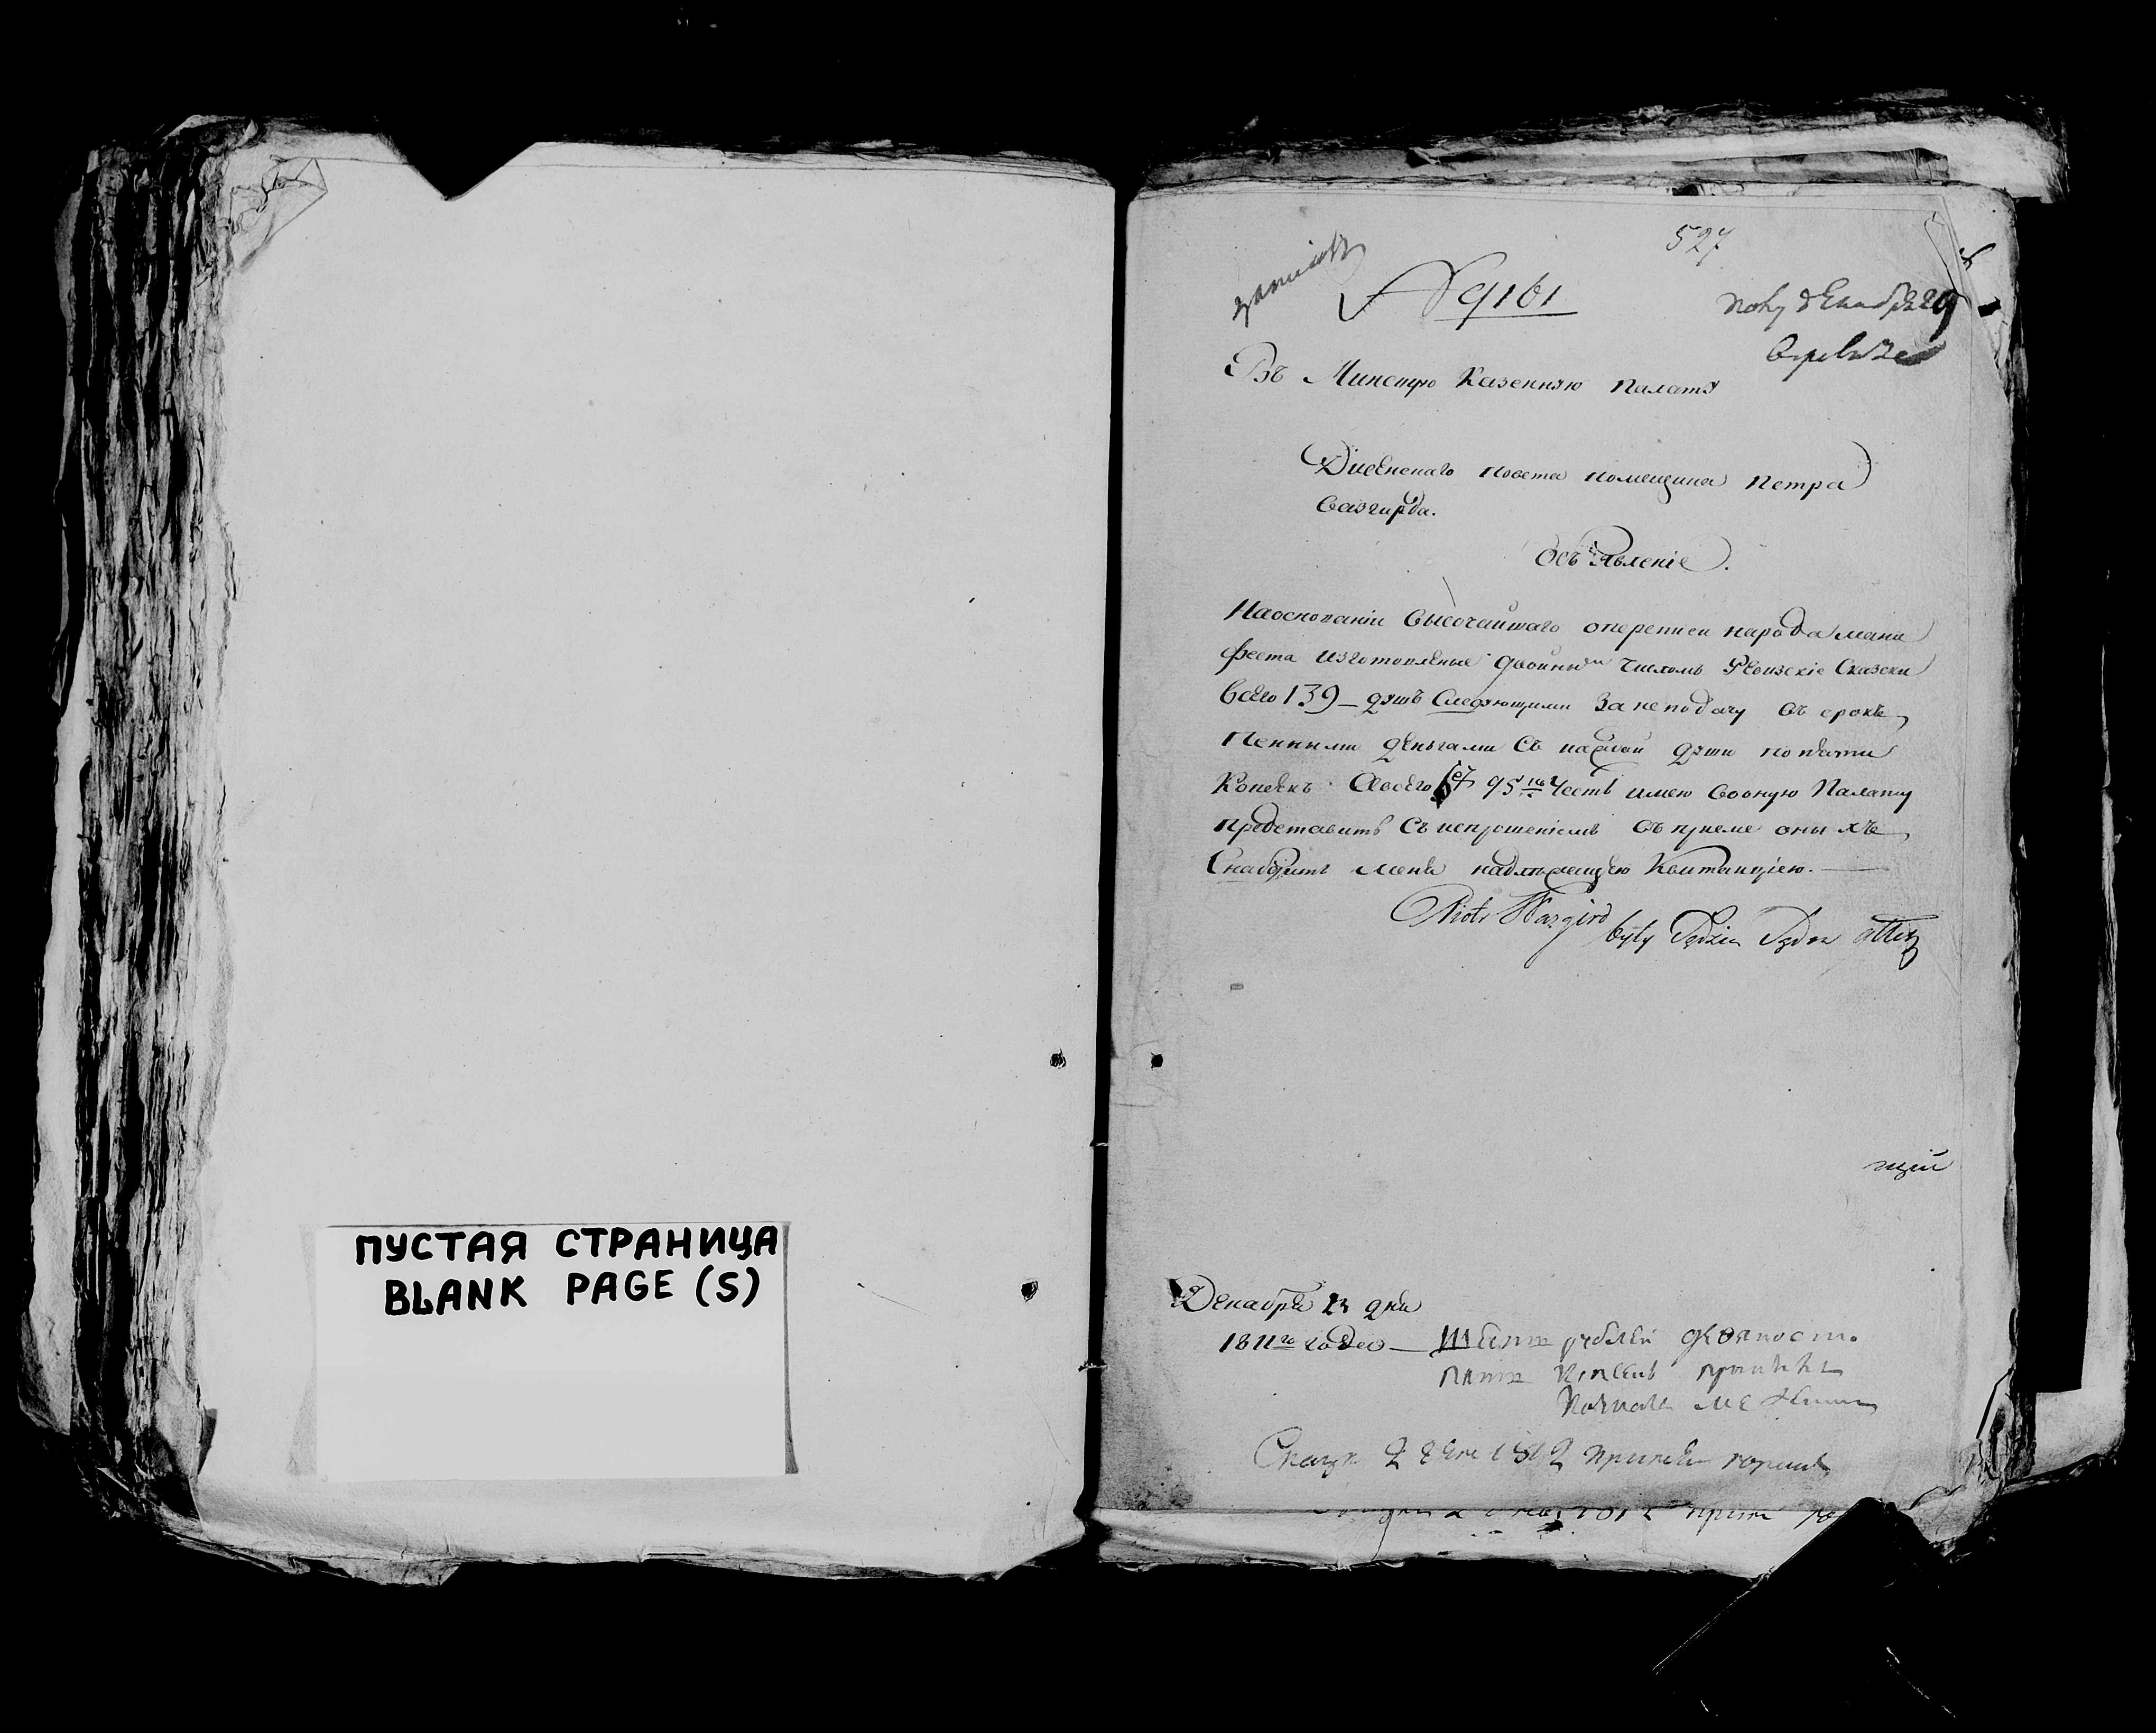 ПУСТАЯ СТРАНИЦА
BLANK PAGE (S)
527
№ 9161
Въ Минскую Казенную Палату
Дисненскаго повета помещика Петра
Вазгирда.
Объявленіе.
На основаніи Высочайшаго о переписи народа мани
феста изготовленые двойнымъ числомъ Ревизскіе Сказски
всего 139 душъ Следующими За неподачу въ срокъ
Пенными деньгами Съ каждой души по пяти
Копеекъ Авсего 95 Честь имею Въ оную Палату
Представить Съ испрошеніемъ Въ приеме оныхъ
Снабдить меня надлежащею Квитанціею.
Piotr Wazgird
były Sędzia
щій
Декабря 23 дня
1811го года Шесть рублей девяност.
пять копеекъ
1812